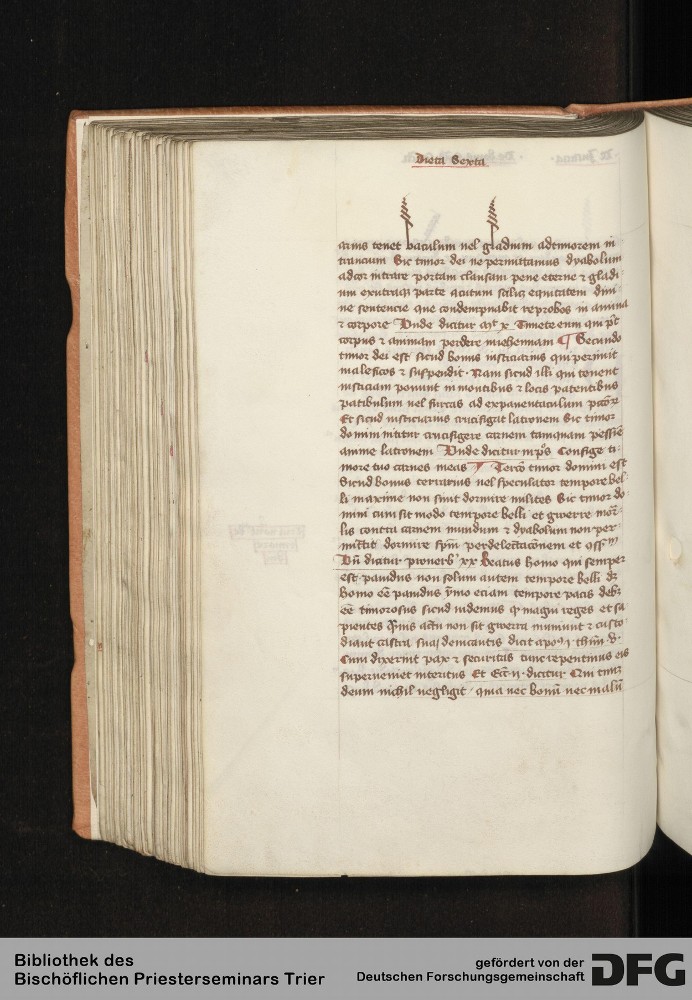 Dieta Sexta
arius tenet baculum uel gladium ad timorem in
trancium Sic timor dei ne permittamus dyabolum
ad cor intrare portam clausam pene eterne ⁊ gladi
um ex utraque parte acutum equitatem diui
ne sentencie que condempnabit reprobos in anima
⁊ corpore Vnde dicitur mt x Timete eum qui pt
corpus ⁊ animam perdere in iehennam ¶ Secundo
timor dei est sicud bonus iusticiarius qui perimit
maleficos ⁊ suspendit. Nam sicud illi qui tenent
iusticiam ponunt in montibus ⁊ locis patentibus
patibulum uel furcas ad expauentaculum
Et sicud iusticiarius crucifigit latronem Sic timor
domini nititur crucifigere carnem tamquam
anime latronem Vnde dicitur in ps Confige ti
more tuo carnes meas ¶ Tercio timor domini est
Sicud bonus uel speculator tempore bel
li maxime non sinit dormire milites Sic timor do
mini cum sit modo tempore belli et gwerre
lis contra carnem mundum ⁊ dyabolum non per
mittit dormire spm per delectacionem et
Vn dicitur prouerb xx Beatus homo qui semper
est pauidus non solum autem tempore belli dz
homo ee pauidus ymo eciam tempore pacis debz
ee timorosus sicud uidemus q magni reges et sa
pientes quis actu non sit gwerra muniunt ⁊ custo
diunt castra sua dicit apo
Cum dixerint pax ⁊ securitas tunc repentinus eis
superueniet interitus Et Ecc dicitur Qui timz
deum nichil negligit quia nec bonum nec malum
Bibliothek des
Bischöflichen Priesterseminars Trier
gefördert von der
Deutschen Forschungsgemeinschaft
DFG